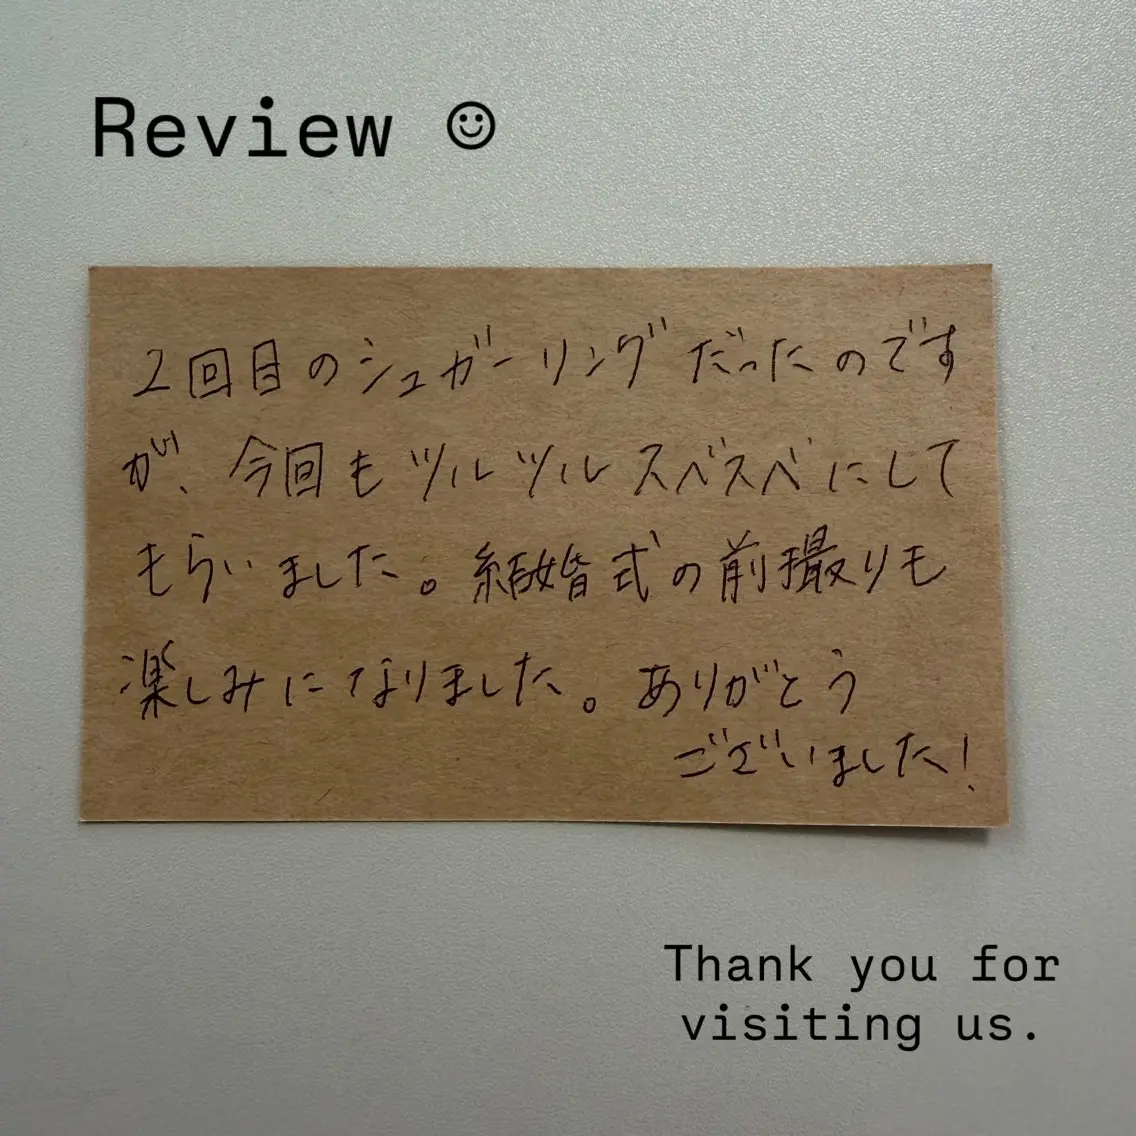 Review ☺
2回目のシュガーリングだったのです
が、今回もツルツルスベスベにして
もらいました。結婚式の前撮りも
楽しみになりました。ありがとう
ございました!
Thank you for
visiting us.